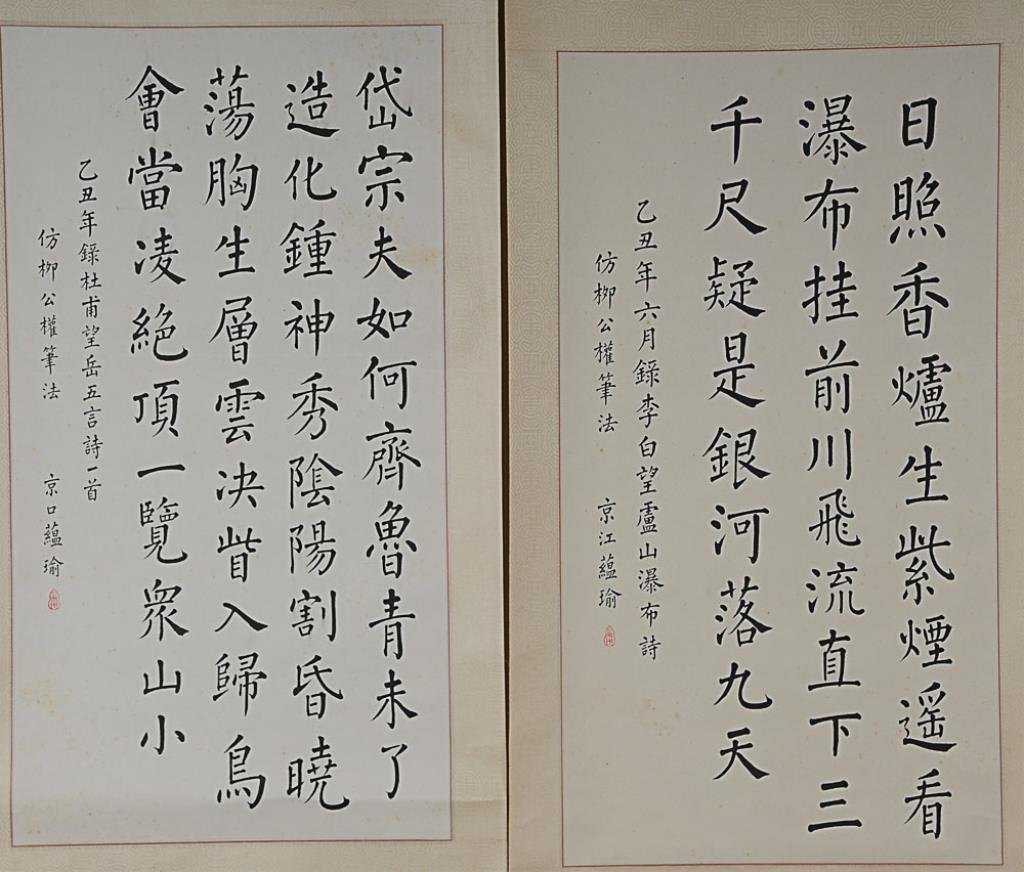 日照香爐生紫煙遥看
瀑布挂前川飛流直下三
千尺疑是銀河落九天
乙丑年六月錄李白望盧山瀑布詩
仿柳公權筆法 京江蘊瑜
岱宗夫如何齊魯青未了
造化鍾神秀陰陽割昏曉
蕩胸生層雲决眥入歸鳥
會當凌絕頂一覽衆山小
乙丑年錄杜甫望岳五言詩一首
仿柳公權筆法 京口蘊瑜